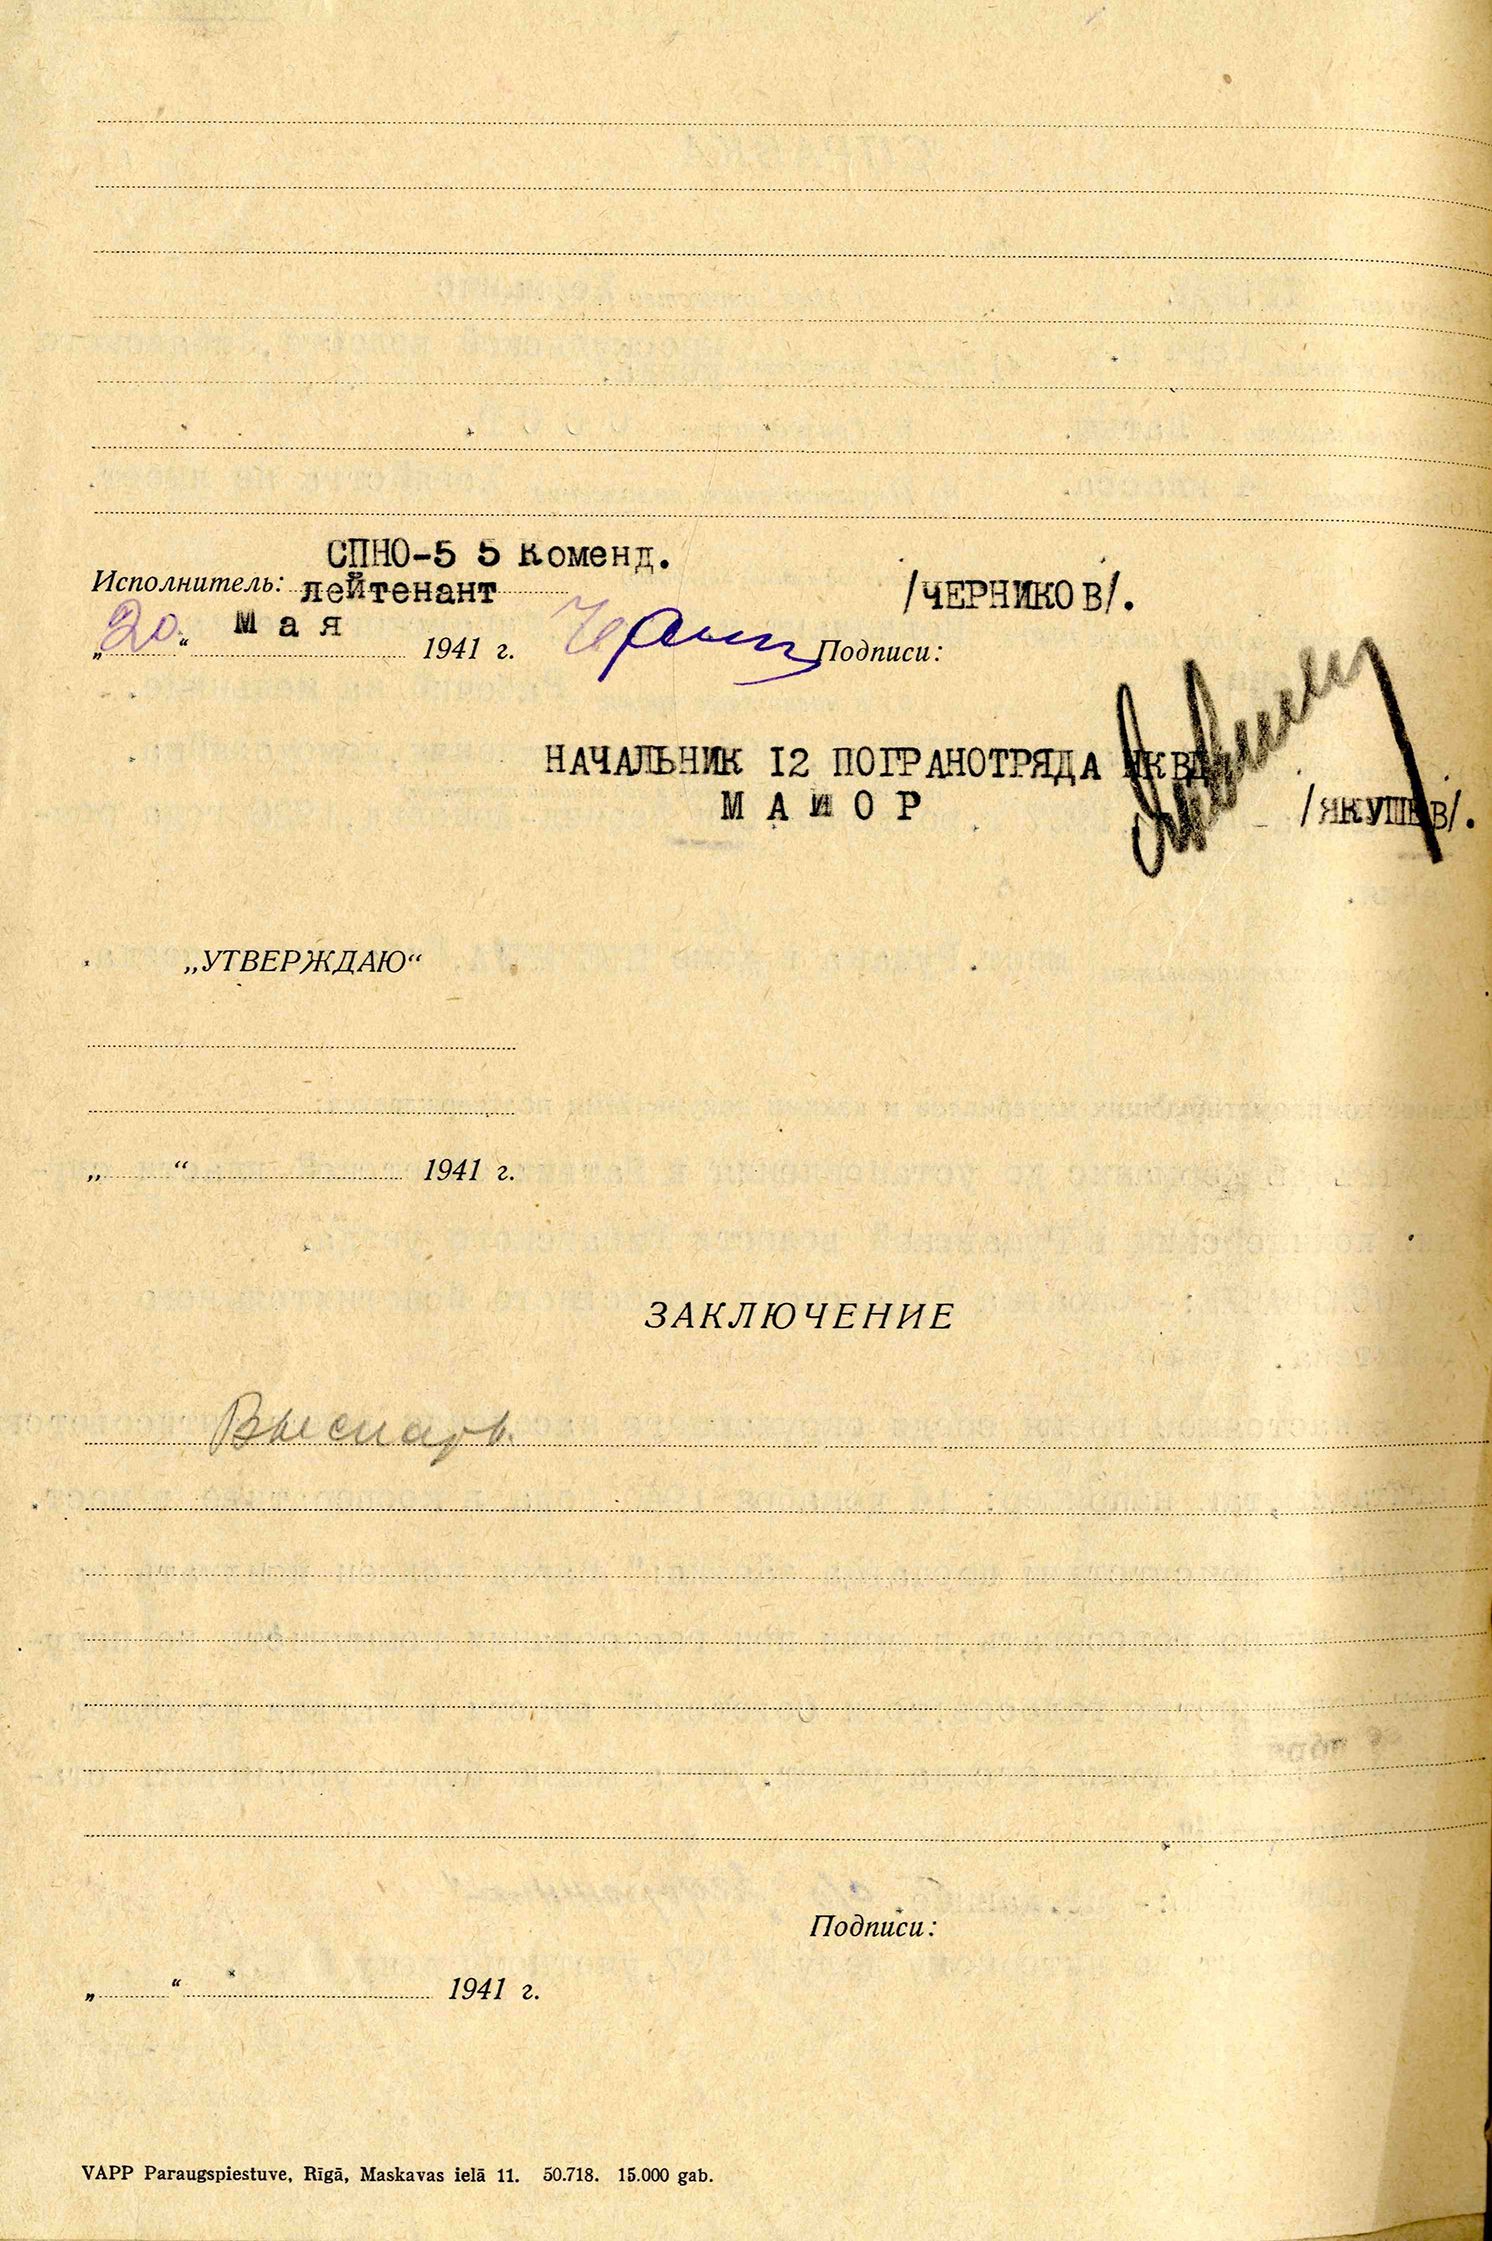 СПНО-5 5 Коменд.
Исполнитель: лейтенант /ЧЕРНИКОВ/.
„20“ Мая 1941 г. Подписи:
НАЧАЛЬНИК 12 ПОГРАНОТРЯДА НКВД
МАЙОР /ЯКУШЕВ/.
„УТВЕРЖДАЮ“
„ “ 1941 г.
ЗАКЛЮЧЕНИЕ
Подписи:
„ “ 1941 г.
VAPP Paraugspiestuve, Rīgā, Maskavas ielā 11. 50.718. 15.000 gab.